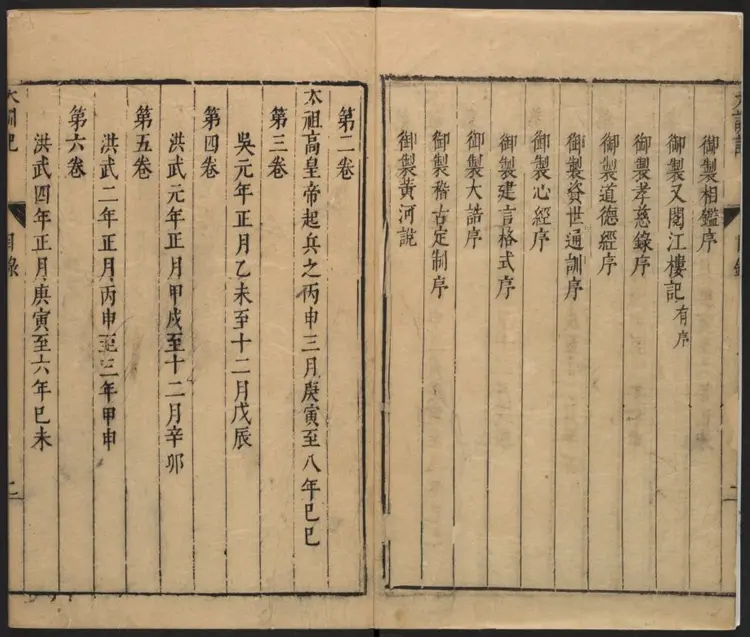 御製相鑑序
御製又閱江樓記有序
御製孝慈錄序
御製道德經序
御製資世通訓序
御製心經序
御製建言格式序
御製大誥序
御製稽古定制序
御製黃河說
第二卷
太祖高皇帝起兵之丙申三月庚寅至八年巳巳
第三卷
吳元年正月乙未至十二月戊辰
第四卷
洪武元年正月甲戌至十二月辛卯
第五卷
洪武二年正月丙申至三年甲申
第六卷
洪武四年正月庚寅至六年巳未
目錄
二